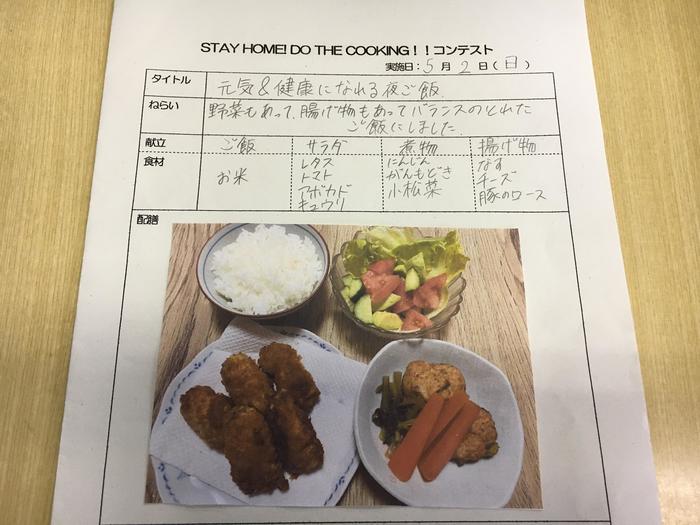 STAY HOME! DO THE COOKING！！コンテスト
実施日：5月2日（日）
タイトル 元気&健康になれる夜ご飯
ねらい 野菜もあって、腸げ物もあってバランスのとれた
ご飯にしました。
献立 ご飯 サラダ 煮物 揚げ物
食材 お米 レタス にんじん なす
トマト がんもどき チーズ
アボカド 小松菜 豚のロース
キュウリ
配膳